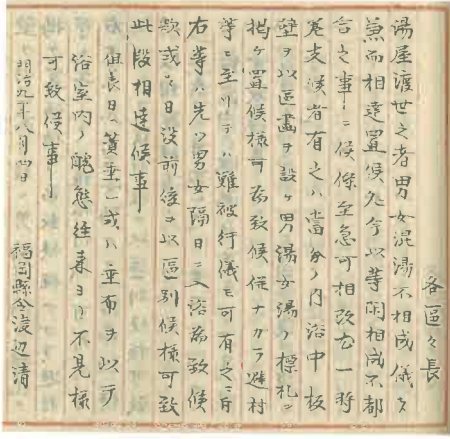 各區々長
湯屋渡世之者男女混湯不相成儀ハ
兼而相達置候処今以等閑相成不都
合之事ニ候条至急可相改尤一時
差支候者有之ハ當分ノ内浴中板
壁ヲ以區畫ヲ設ケ男湯女湯ノ標札ヲ
掲ケ置候様可為致候従ナカラ遊村
等ニ至リテハ難被行儀モ可有之ニ付
右等ハ先ツ男女隔日ニ入浴為致候
歟或ハ日没前後ヲ以區別候様可致
此段相達候事
但表口ハ簀垂一或ハ垂布ヲ以テ
浴室内ノ醜態往来ヨリ不見様
可致候事
明治九年八月四日
福岡縣令渡辺清